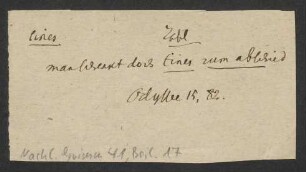 eines Zahl
man schenkt doch Eines zum abschied
Odyssee 15, 82.
Nachl. Grimm 41, Beil. 17